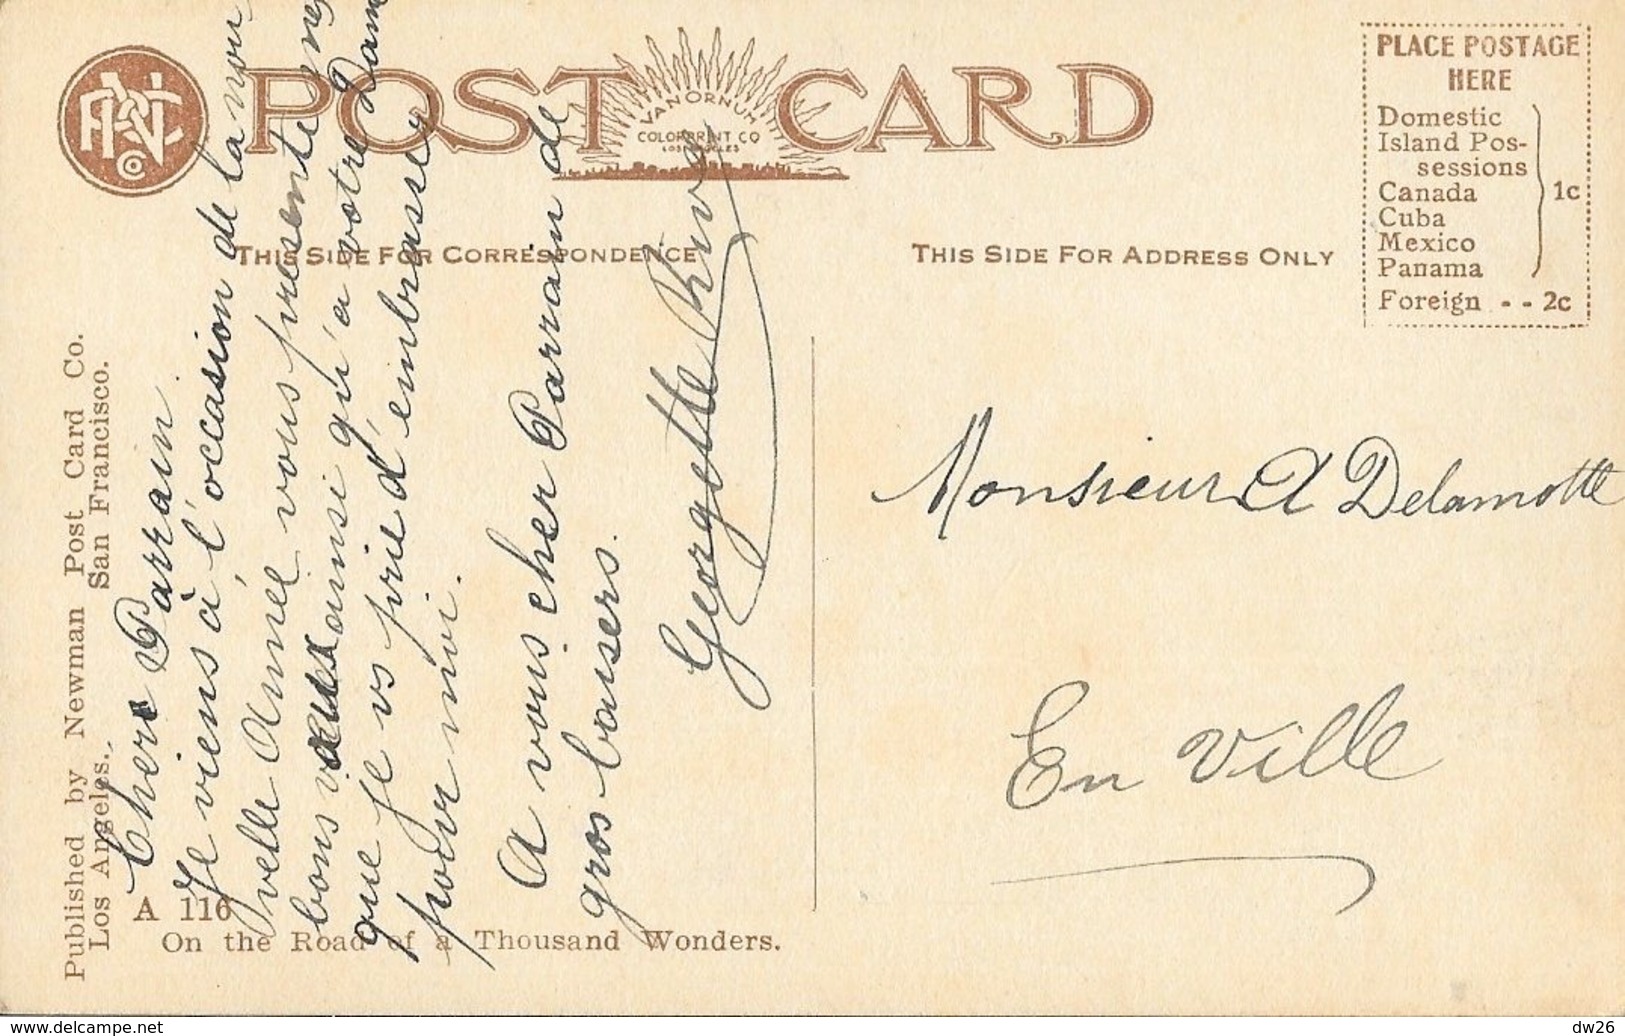 POST CARD
VAN ORNUM
COLORPRINT CO
LOS ANGELES
PLACE POSTAGE
HERE
Domestic
Island Pos-
sessions
Canada
Cuba
Mexico
Panama
1c
Foreign - - 2c
THIS SIDE FOR CORRESPONDENCE
THIS SIDE FOR ADDRESS ONLY
Published by Newman Post Card Co.
Los Angeles. San Francisco.
Cher Parrain.
Je viens à l'occasion de la nou
velle Année vous présenter mes
bons vœux ainsi qu'à votre Dame
que je vs prie d'embrasser
pour moi.
A vous cher Parrain de
gros baisers.
Georgette
Monsieur A Delamotte
En Ville
A 116
On the Road of a Thousand Wonders.
delcampe.net
dw26